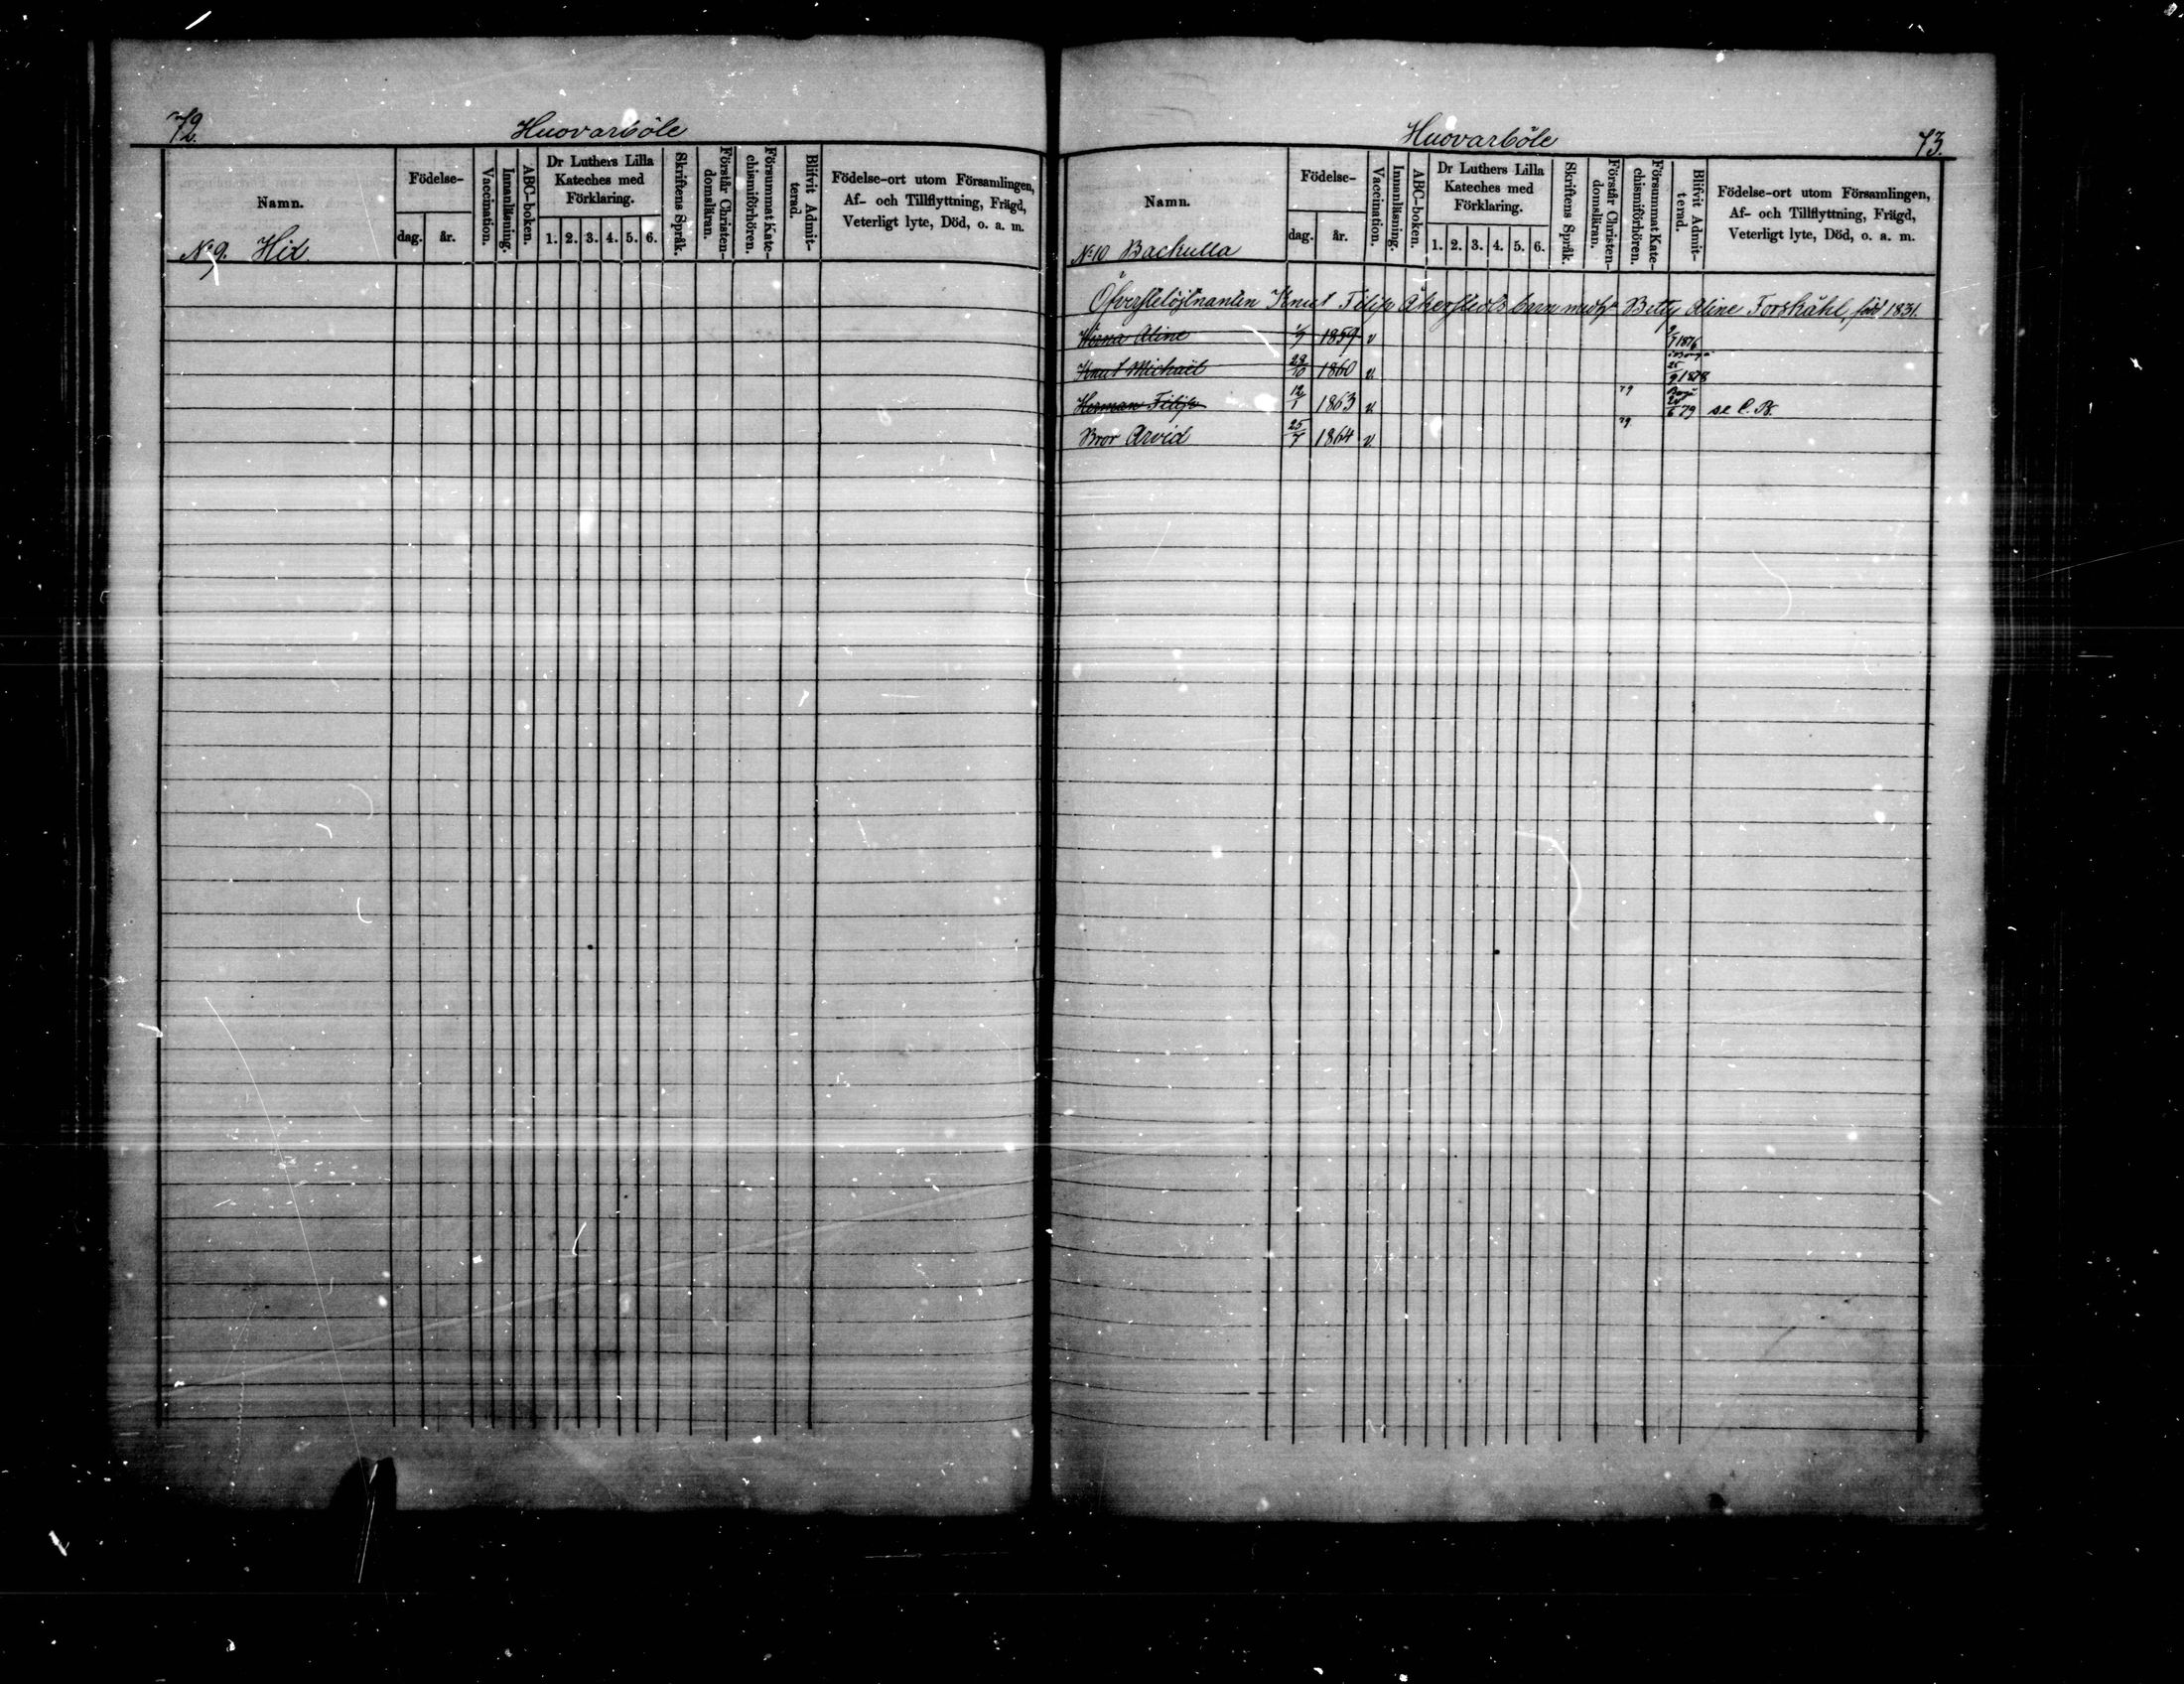 72.
Huovarböle
Namn.
Födelse-
dag.
år.
Vaccination.
Innanläsning.
ABC-boken.
Dr Luthers Lilla
Kateches med
Förklaring.
1. 2. 3. 4. 5. 6.
Skriftens Språk.
Förstår Christen-
domsläran.
Försummat Kate-
chismiförhören.
Blifvit Admit-
terad.
Födelse-ort utom Församlingen,
Af- och Tillflyttning, Frägd,
Veterligt lyte, Död, o. a. m.
No 9. Hid.
Huovarböle
73.
Namn.
Födelse-
dag.
år.
Vaccination.
Innanläsning.
ABC-boken.
Dr Luthers Lilla
Kateches med
Förklaring.
1. 2. 3. 4. 5. 6.
Skriftens Språk.
Förstår Christen-
domsläran.
Försummat Kate-
chismiförhören.
Blifvit Admit-
terad.
Födelse-ort utom Församlingen,
Af- och Tillflyttning, Frägd,
Veterligt lyte, Död, o. a. m.
No 10 Backulla
Öfverstelöjtnanten Knut Filip Åkerstedts barn med Betty Aline Forskåhl, född 1831.
Aline 1859 v 1876
Knut Michaël 29/10 1860 v. 25/9 1878
Herman Filip 12/1 1863 v. 79 79 se C. B.
Bror Arvid 25/7 1864 v. 79